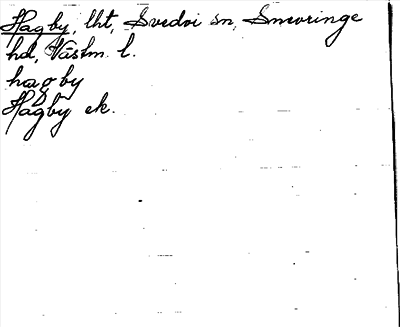 Hagby, lht, Svedvi sn, Snevringe
hd, Västm. l.
hagby
Hagby ek.